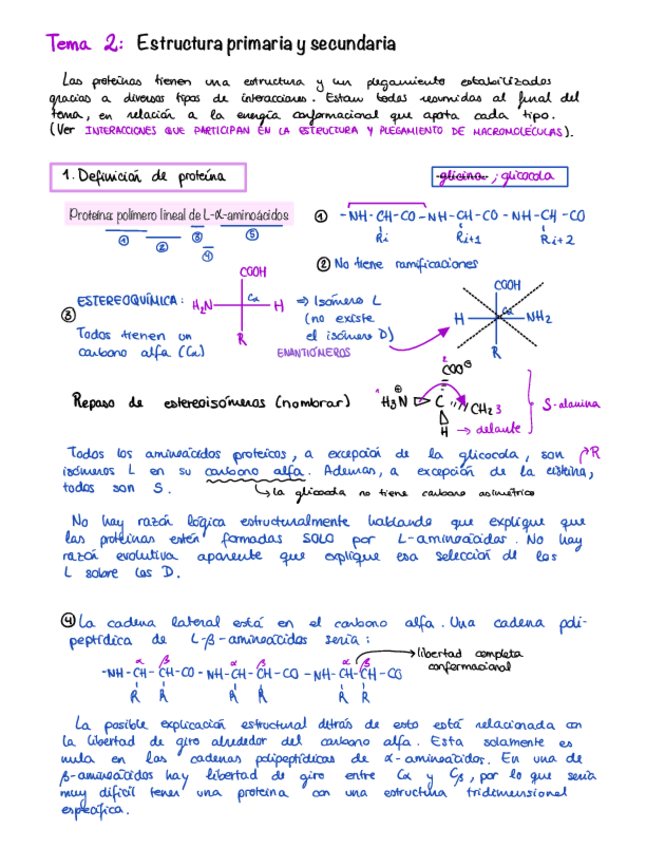 Tema 2: Estructura primaria y secundaria
Las proteínas tienen una estructura y un plegamiento estabilizados
gracias a diversos tipos de interacciones. Estan todas resumidas al final del
tema, en relación a la energía conformacional que aporta cada tipo.
(Ver INTERACCIONES QUE PARTICIPAN EN LA ESTRUCTURA Y PLEGAMIENTO DE MACROMOLÉCULAS).
1. Definición de proteína
glicina ; glicocola
Proteína: polímero lineal de L-α-aminoácidos
① ② ③ ④ ⑤
① -NH-CH-CO-NH-CH-CO-NH-CH-CO
Ri Ri+1 Ri+2
② No tiene ramificaciones
③ ESTEREOQUÍMICA:
COOH
H₂N Cα H
R
⇒ Isómero L
(no existe
el isómero D)
COOH
H Cα NH₂
R
Todos tienen un
carbono alfa (Cα)
ENANTIÓMEROS
Repaso de estereoisómeros (nombrar)
2
COO⊖
1 ⊕
H₃N C CH₂ 3
H → delante
S-alanina
Todos los aminoácidos proteicos, a excepción de la glicocola, son
isómeros L en su carbono alfa. Además, a excepción de la cisteina, R
todos son S.
la glicocola no tiene carbono asimétrico
No hay razón lógica estructuralmente hablando que explique que
las proteínas estén formadas SOLO por L-aminoácidos. No hay
razón evolutiva aparente que explique esa selección de los
L sobre los D.
④ La cadena lateral está en el carbono alfa. Una cadena poli-
peptídica de L-β-aminoácidos sería:
libertad completa
conformacional
α β α β α β
-NH-CH-CH-CO-NH-CH-CH-CO-NH-CH-CH-CO
R R R R R R
La posible explicación estructural detrás de esto está relacionada con
la libertad de giro alrededor del carbono alfa. Esta solamente es
nula en las cadenas polipeptídicas de α-aminoácidos. En una de
β-aminoácidos hay libertad de giro entre Cα y Cβ, por lo que sería
muy difícil tener una proteína con una estructura tridimensional
específica.